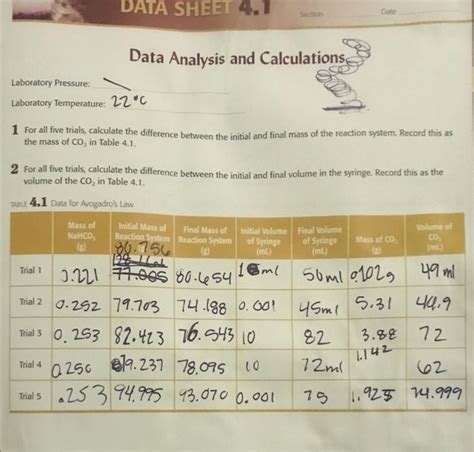 DATA SHEET 4.1
Section
Date
Data Analysis and Calculations
Laboratory Pressure:
Laboratory Temperature: 22°C
1 For all five trials, calculate the difference between the initial and final mass of the reaction system. Record this as
the mass of CO₂ in Table 4.1.
2 For all five trials, calculate the difference between the initial and final volume in the syringe. Record this as the
volume of the CO₂ in Table 4.1.
TABLE 4.1 Data for Avogadro's Law
Mass of NaHCO₃ (g) Initial Mass of Reaction System Final Mass of Reaction System (g) Initial Volume of Syringe (mL) Final Volume of Syringe (mL) Mass of CO₂ (g) Volume of CO₂ (mL)
80.756
Trial 1 0.221 77.005 80.654 ml 50ml 0.102g 49 ml
Trial 2 0.252 79.703 74.188 0.001 45ml 5.31 44.9
Trial 3 0.253 82.423 76.543 10 82 3.88 72
Trial 4 0.250 79.237 78.095 10 72ml 1.142 62
Trial 5 .253 94.995 93.070 0.001 75 1.925 74.999